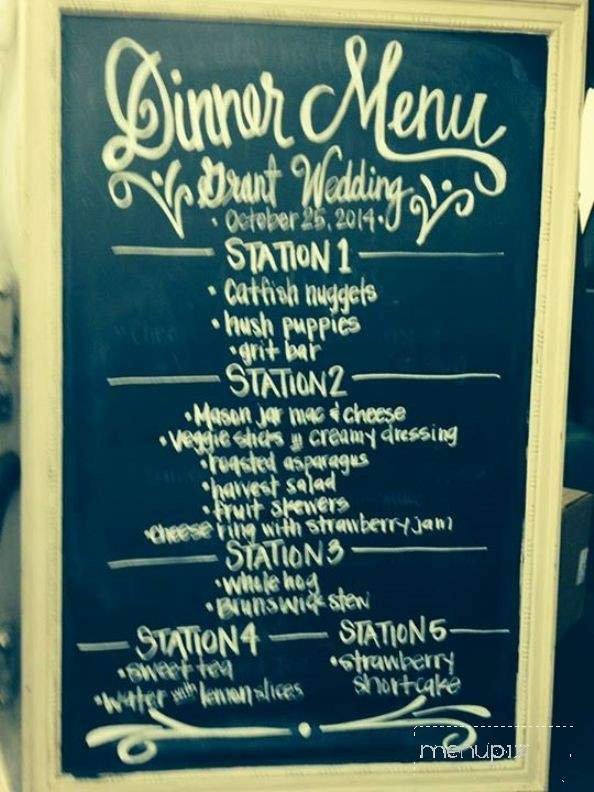 Dinner Menu
Grant Wedding
• October 25, 2014 •
STATION 1
• catfish nuggets
• hush puppies
• grit bar
STATION 2
• Mason jar mac & cheese
• veggie sticks w creamy dressing
• roasted asparagus
• harvest salad
• fruit skewers
• cheese ring with strawberry jam
STATION 3
• whole hog
• Brunswick stew
STATION 4
• sweet tea
• water with lemon slices
STATION 5
• strawberry
shortcake
menupix